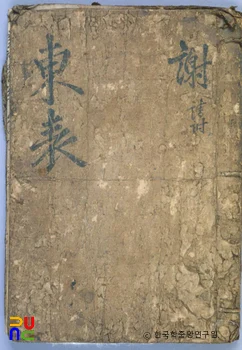 謝
東表
© 한국학중앙연구원